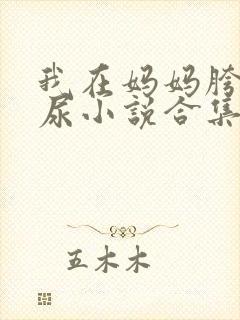 我在妈妈胯
尿小说合集
五木木